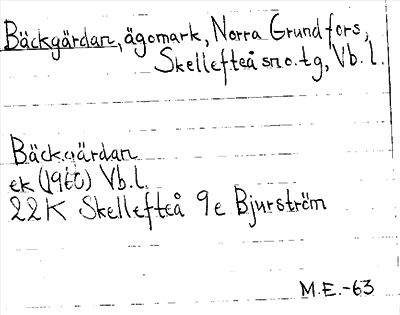 Bäckgärdan, ägomark, Norra Grundfors,
Skellefteå sn o. tg, Vb. l.
Bäckgärdan
ek (1960) Vb. l.
22K Skellefteå 9e Bjurström
M.E.-63